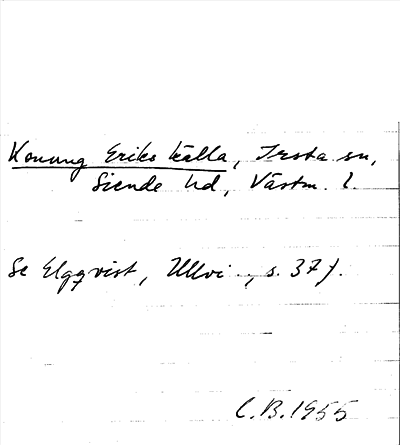 Konung Eriks källa, Irsta sn,
Siende hd, Västm. l.
Se Elgqvist, Ullvi.., s. 37 f.
C.B. 1955